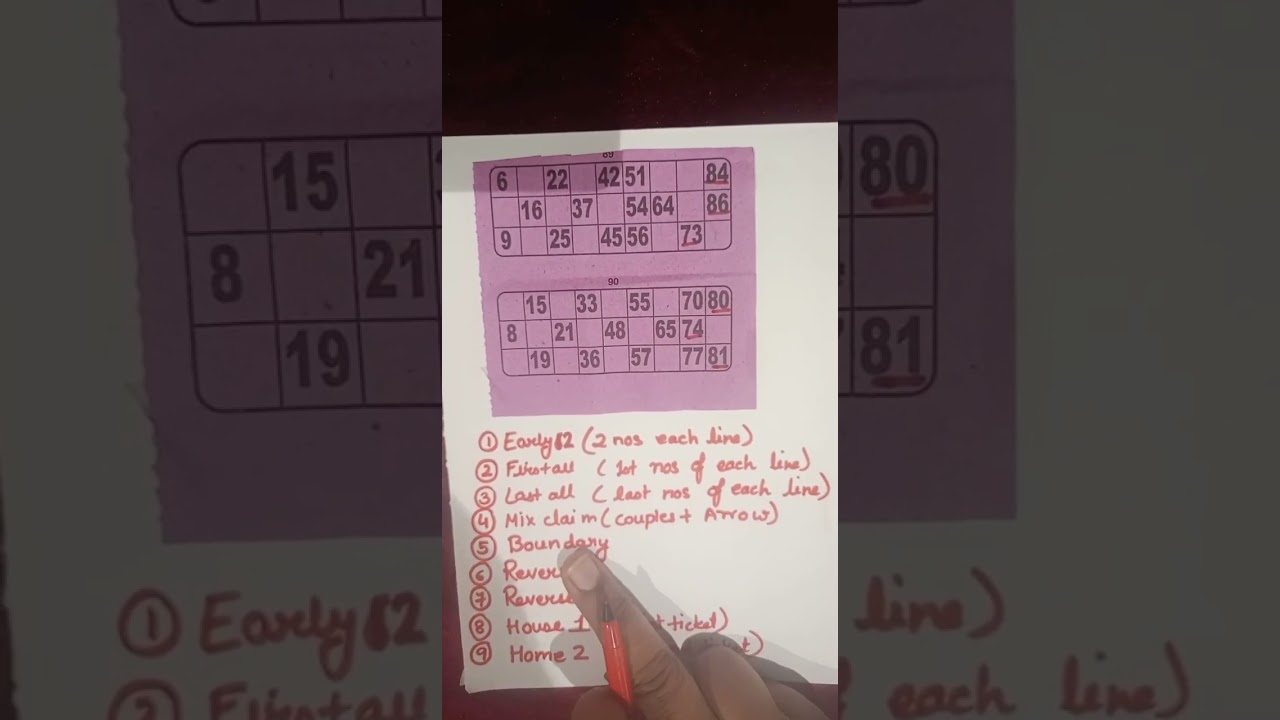 89
6 22 42 51 84
16 37 54 64 86
9 25 45 56 73
90
15 33 55 70 80
8 21 48 65 74
19 36 57 77 81
① Early 12 (2 nos each line)
② First all (1st nos of each line)
③ Last all (last nos of each line)
④ Mix claim (couples + Arrow)
⑤ Boundary
⑥ Rever
⑦ Reverse
⑧ House 1 t ticket)
⑨ Home 2